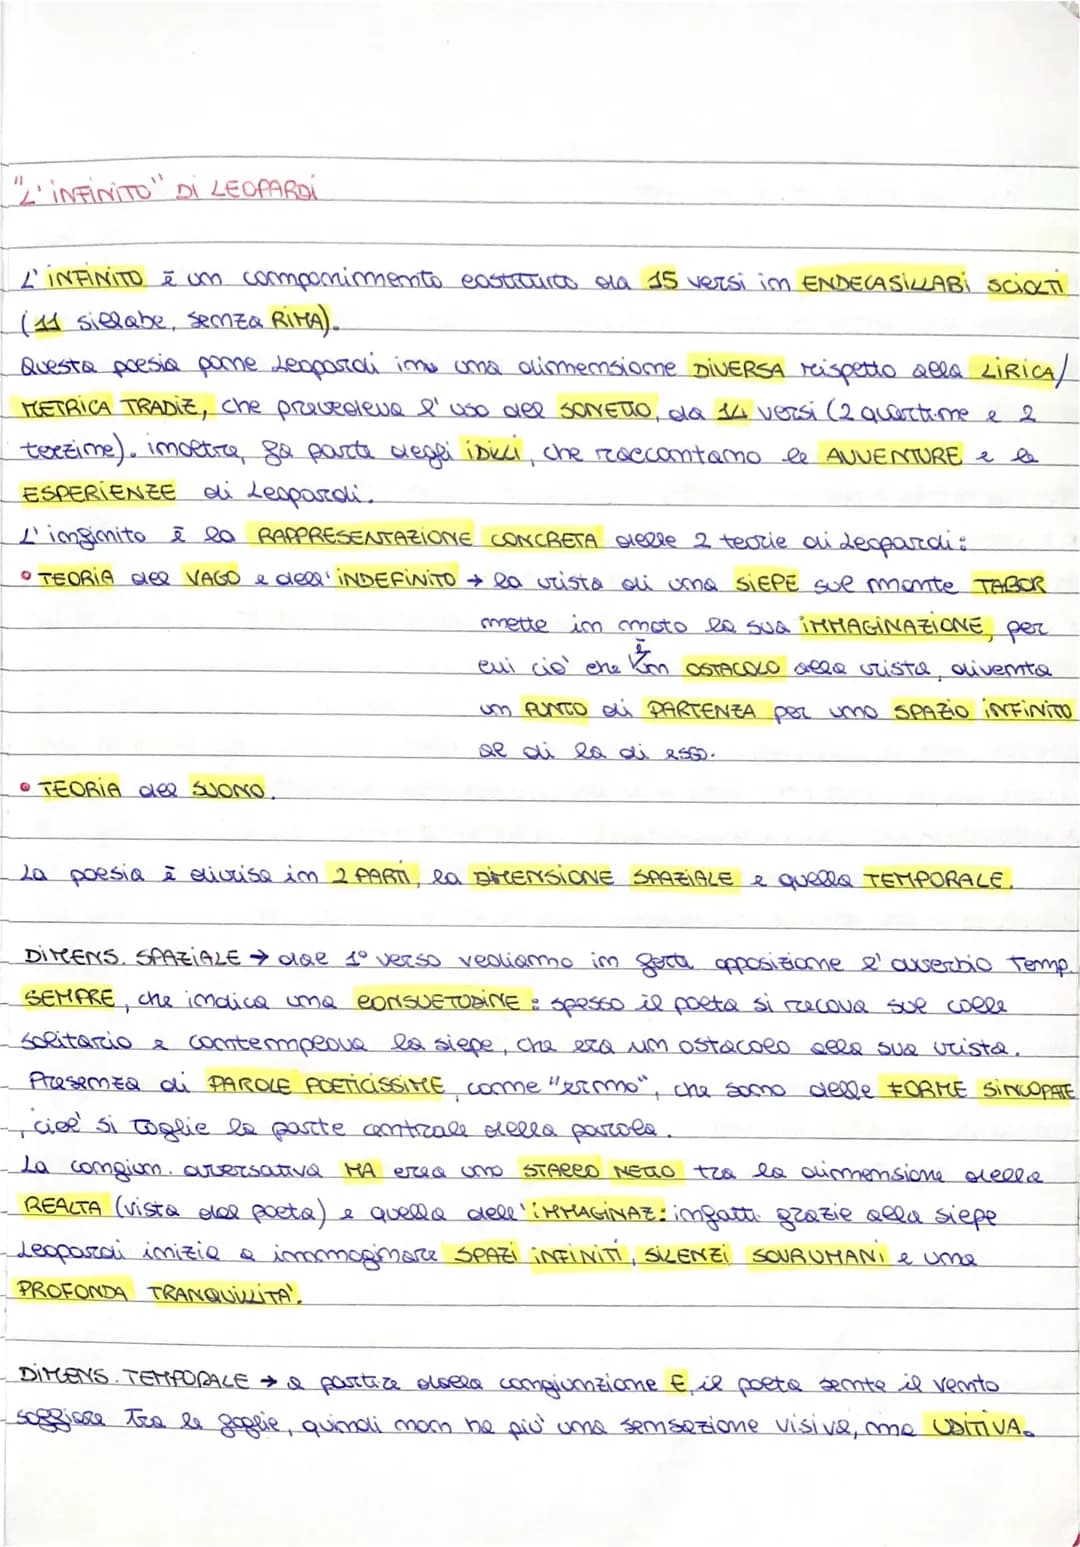 "L'INFINITO" DI LEOPARDI
L'INFINITO è un componimento costituito da 15 versi in ENDECASILLABI SCIOLTI
(11 sillabe, senza RIMA).
Questa poesia pone Leopardi in una dimensione DIVERSA rispetto alla LIRICA/
METRICA TRADIZ, che prevedeva l'uso del SONETTO, da 14 versi (2 quartine e 2
terzine). inoltre, fa parte degli IDILLI, che raccontano le AVVENTURE e le
ESPERIENZE di Leopardi.
L'infinito è la RAPPRESENTAZIONE CONCRETA delle 2 teorie di Leopardi:
• TEORIA del VAGO e dell'INDEFINITO → la vista di una SIEPE sul monte TABOR
mette in moto la sua IMMAGINAZIONE, per
cui ciò che è un OSTACOLO alla vista, diventa
un PUNTO di PARTENZA per uno SPAZIO INFINITO
al di la di esso.
• TEORIA del SUONO.
La poesia è divisa in 2 PARTI, la DIMENSIONE SPAZIALE e quella TEMPORALE.
DIMENS. SPAZIALE → dal 1° verso vediamo in forte opposizione l'avverbio temp.
SEMPRE, che indica una CONSUETUDINE: spesso il poeta si recava sul colle
solitario e contemplava la siepe, che era un ostacolo alla sua vista.
Presenza di PAROLE POETICISSIME, come "ermo", che sono delle FORME SINCOPATE
, cioè si toglie la parte centrale della parola.
La congiun. avversativa MA crea uno STACCO NETTO tra la dimensione della
REALTA (vista dal poeta) e quella dell'IMMAGINAZ: infatti grazie alla siepe
Leopardi inizia a immaginare SPAZI INFINITI, SILENZI SOVRUMANI e una
PROFONDA TRANQUILLITA'.
DIMENS. TEMPORALE → a partire dalla congiunzione E, il poeta sente il vento
soffiare tra le foglie, quindi non ha più una sensazione visiva, ma UDITIVA.